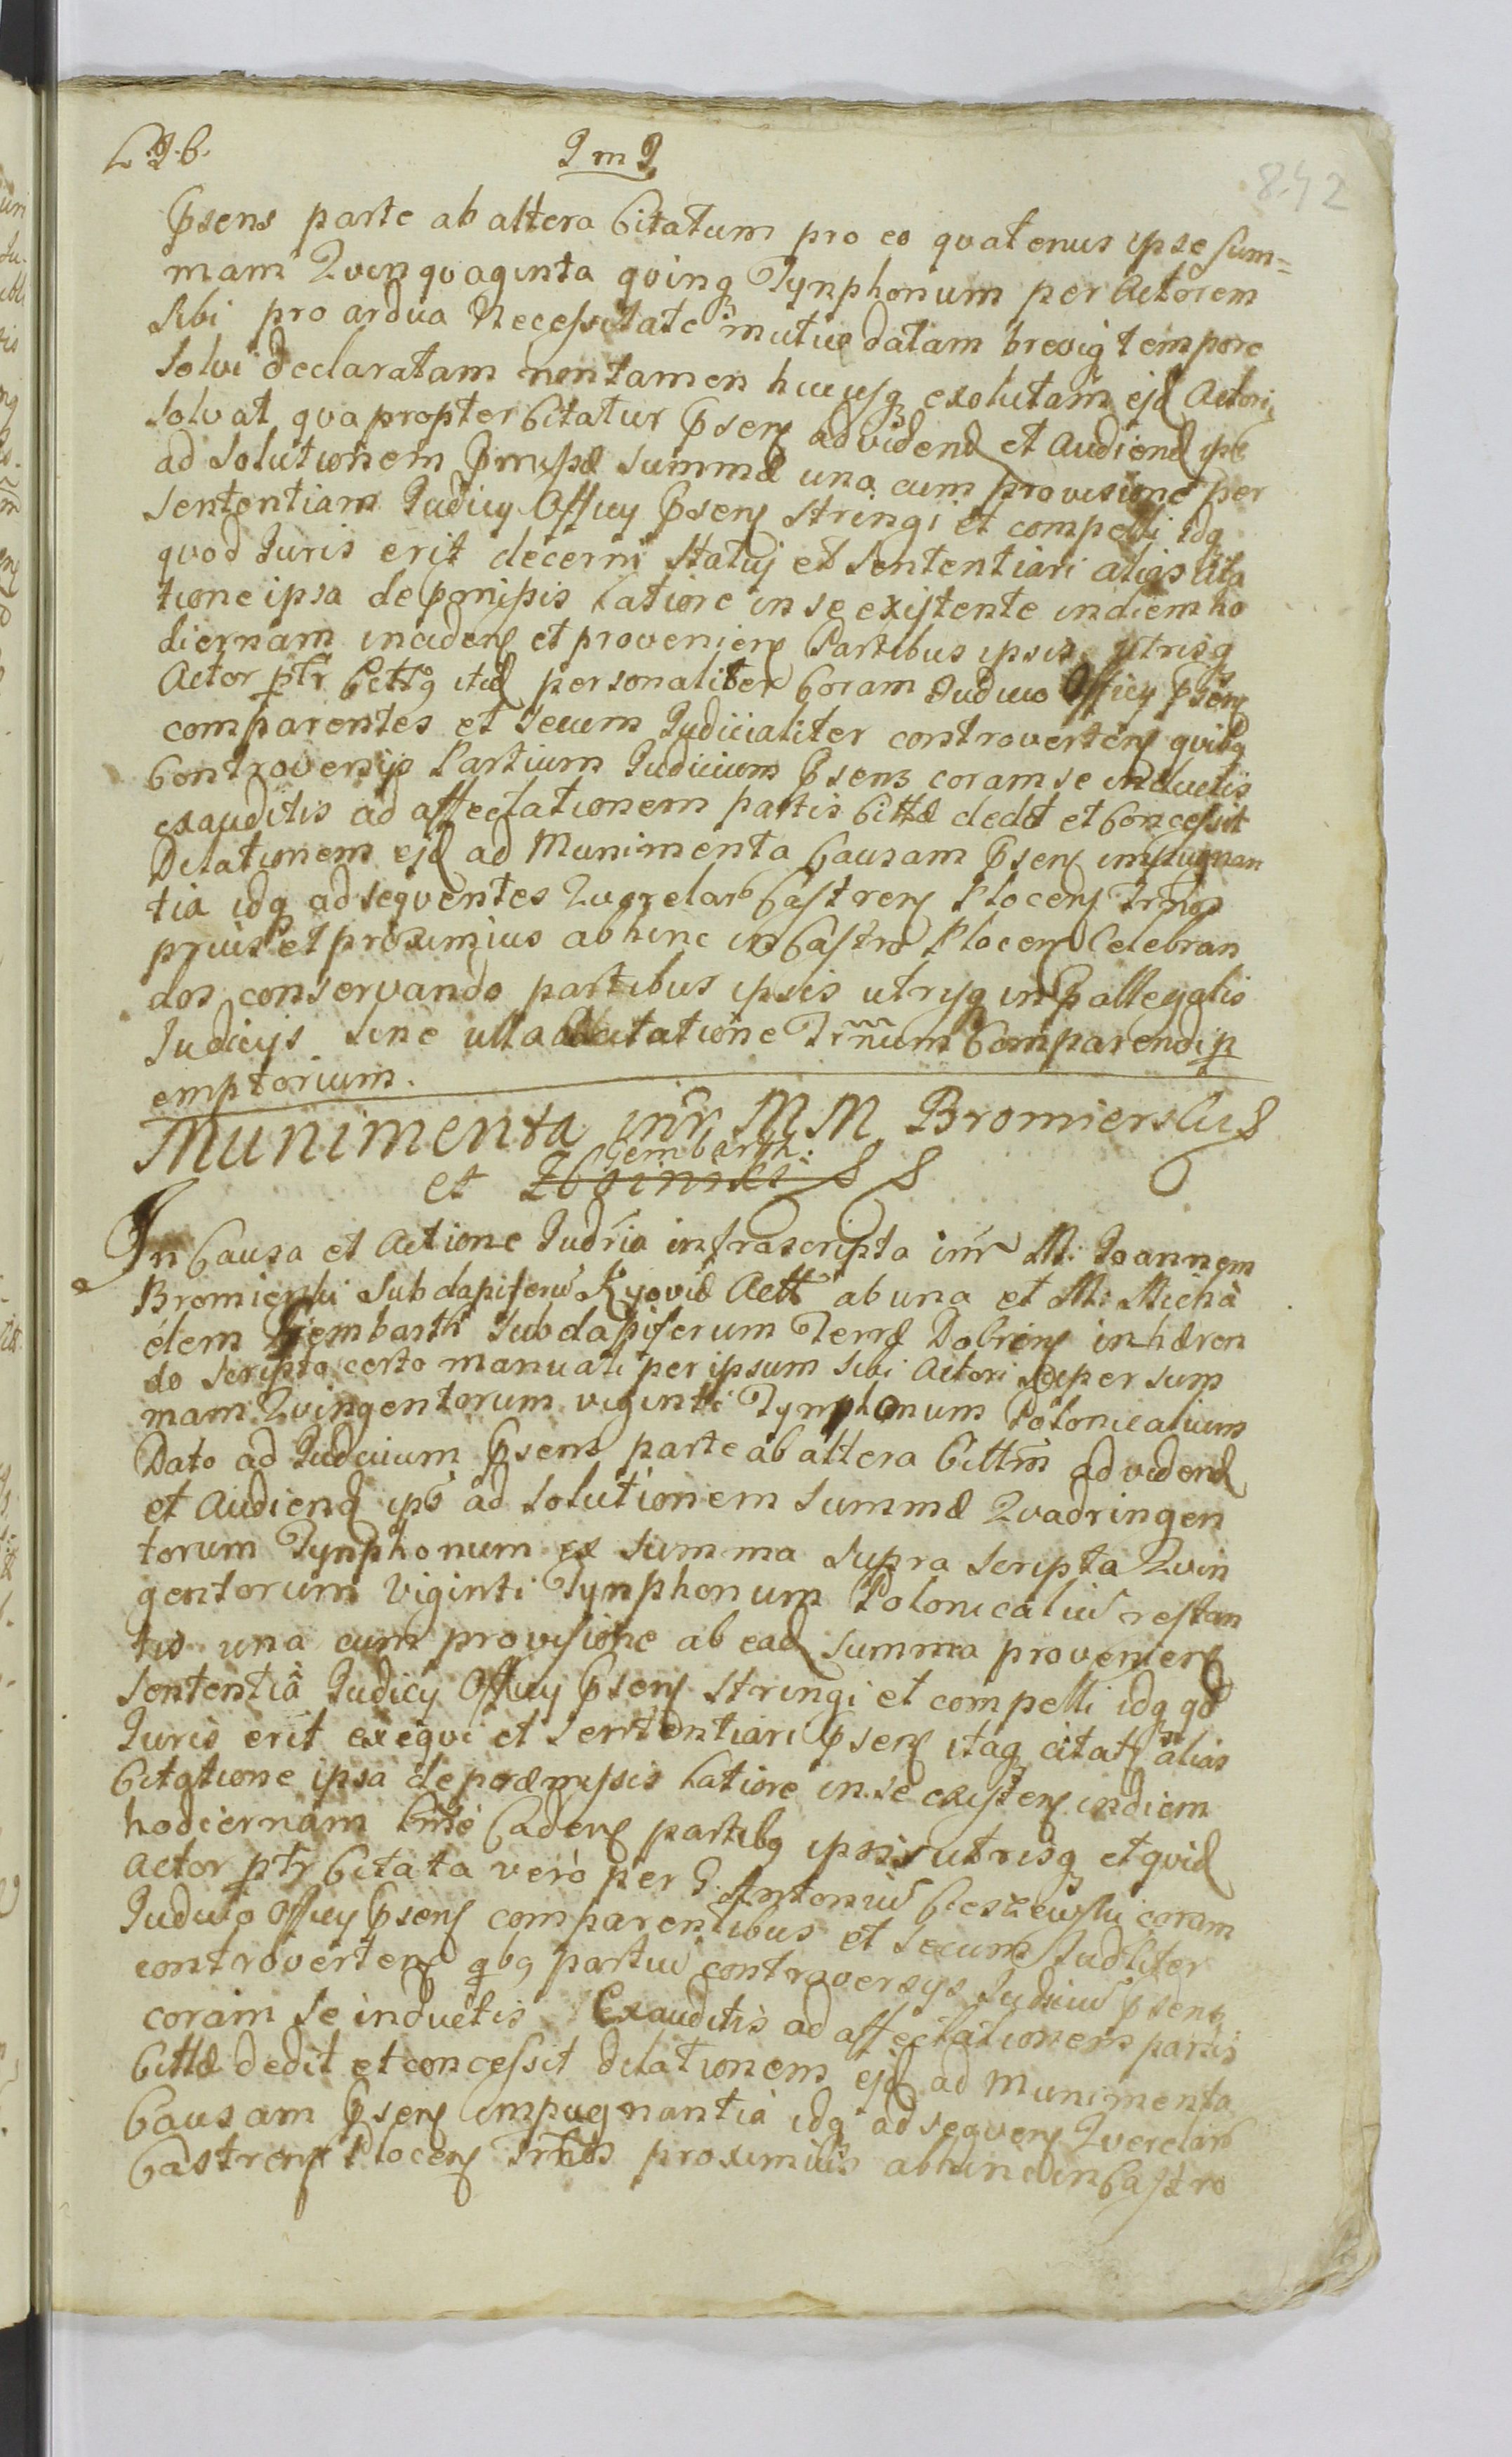 842
Psens parte ab altera Citatum pro eo qvatenus ipse sum=
mam Qvinqvaginta qvinq Tynphonum per Actorem
sibi pro ardua Necessitate mutuo datam brevig tempore
solvi declaratam non tamen hucusq exolutam ejd Actori
solvat qvapropter Citatur Psens ad vidend et Audiend ipe
ad solutionem Pmisæ summæ una cum provisione per
sententiam Judicij Officij Psens stringi et compelli idq
quod Juris erit decerni statuj et sententiari alias Cita
tione ipsa de pmissis latiore in se existente in diem ho
diernam incidens et proveniens Partibus ipsis utrisq
Actor ptr Cittg itid personaliter Coram Judicio Officij Psens
comparentes et secum Judicialiter controvertens qvibg
Controversijs Partium Judicium Psens coram se inductis
exauditis ad affectationem partis Cittæ dedit et Concessit
Dilationem ejd ad Munimenta Causam Psens impugnan
tia idq ad seqventes Qverelar Castrens Plocens Trnos
prius et proximius abhinc in Castro Plocens Celebran
dos conservando partibus ipsis utrisq in Pallegatis
Judicijs sine ulla Adcitatione Trnum Comparendi p
emptorium.
Munimenta intr MM Bromierski
Gembarth:
et Zboinski
In Causa et Actione Judria infrascripta intr M: Joannem
Bromierski Subdapiferu Kyovie Actt ab una et M: Micha
elem Gembarth Subdapiferum Terræ Dobrens inhæren
do scripto certo manuali per ipsum sibi Actori super sum
mam Qvingentorum viginti Tynphonum Polonicalium
Dato ad Judicium Psens parte ab altera Cittm ad vidend
et Audiend ips ad solutionem summæ Qvadringen
torum Tynphonum ex summa supra scripta Qvin
gentorum Viginti Tynphonum Polonicaliu restan
tis una cum provisione ab ead summa proveniens
sententia Judicij Officij Psens stringi et compelli idq qd
Juris erit exeqvi et sententiari Psens itaq citat alias
Citatione ipsa de præmissis latiore in se existens in diem
hodiernam Cadens partibg ipsis utrisq et qvid
Actor ptr Citata verò per G. Antoniu Cieszewski coram
Judicio Officij Psens comparentibus et secum Judliter
controvertens qbg partiu controversijs Judiciu Psens
coram se inductis Exauditis ad affectationem partis
Cittæ dedit et concessit dilationem ejd ad Munimenta
Causam Psens impugnantia idq ad seqvens Qverelar
Castrens Plocens Trnos proximius abhinc in Castro